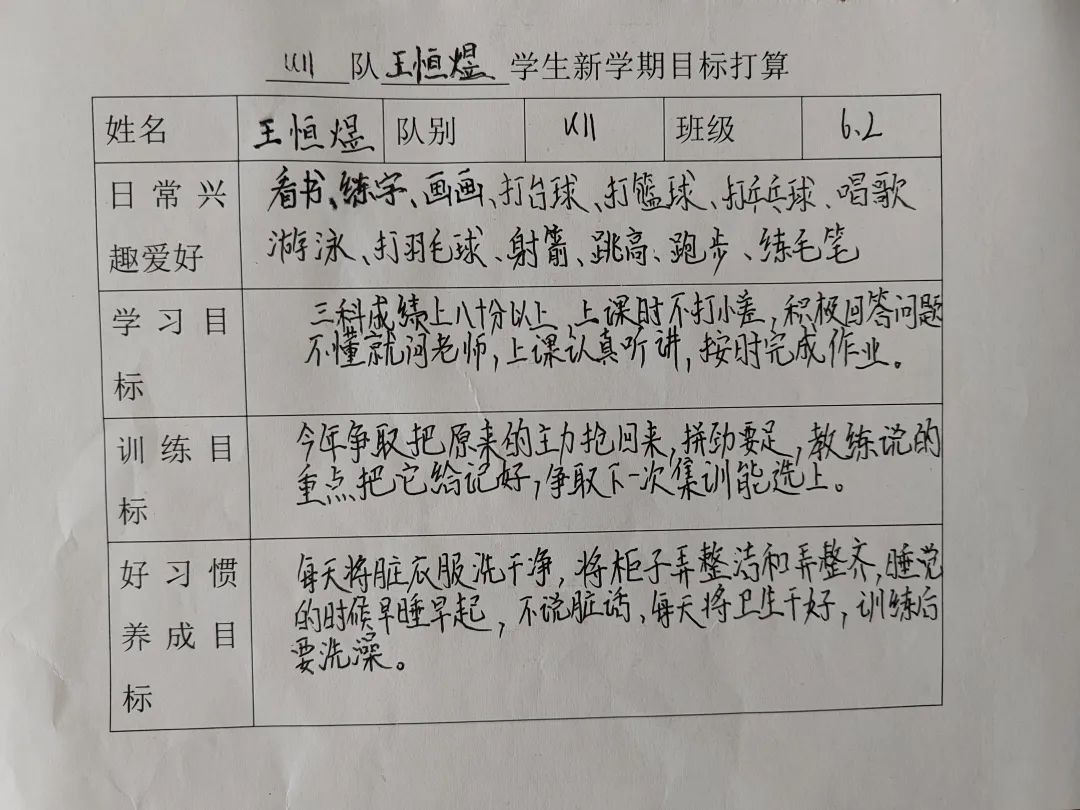 U11 队 王恒煜 学生新学期目标打算
姓名 王恒煜 队别 U11 班级 6.2
日常兴趣爱好
看书、练字、画画、打台球、打篮球、打乒乓球、唱歌
游泳、打羽毛球、射箭、跳高、跑步、练毛笔
学习目标
三科成绩上八十分以上,上课时不打小差,积极回答问题
不懂就问老师,上课认真听讲,按时完成作业。
训练目标
今年争取把原来的主力抢回来,拼劲要足,教练说的
重点把它给记好,争取下一次集训能选上。
好习惯养成目标
每天将脏衣服洗干净,将柜子弄整洁和弄整齐,睡觉
的时候早睡早起,不说脏话、每天将卫生干好,训练后
要洗澡。